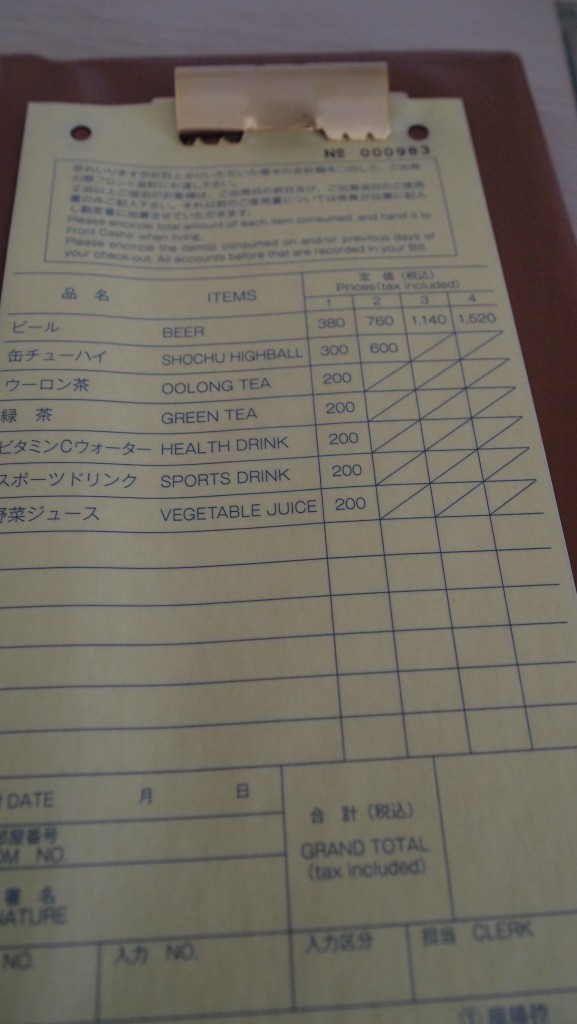 No 000983
の際フロント会計にお渡し下さい。
Please encircle total amount of each item consumed, and hand it to
Front Cashir when living.
Please encircle the item(s) consumed on and/or previous days of
your check-out. All accounts before that are recorded in your Bill.
品 名 ITEMS 定 価 (税込)
Prices(tax included)
1 2 3 4
ビール BEER 380 760 1,140 1,520
缶チューハイ SHOCHU HIGHBALL 300 600
ウーロン茶 OOLONG TEA 200
緑 茶 GREEN TEA 200
ビタミンCウォーター HEALTH DRINK 200
スポーツドリンク SPORTS DRINK 200
野菜ジュース VEGETABLE JUICE 200
DATE 月 日
合 計 (税込)
GRAND TOTAL
(tax included)
部屋番号
OM NO
署 名
NATURE
NO. 入力 NO. 入力区分 担当 CLERK